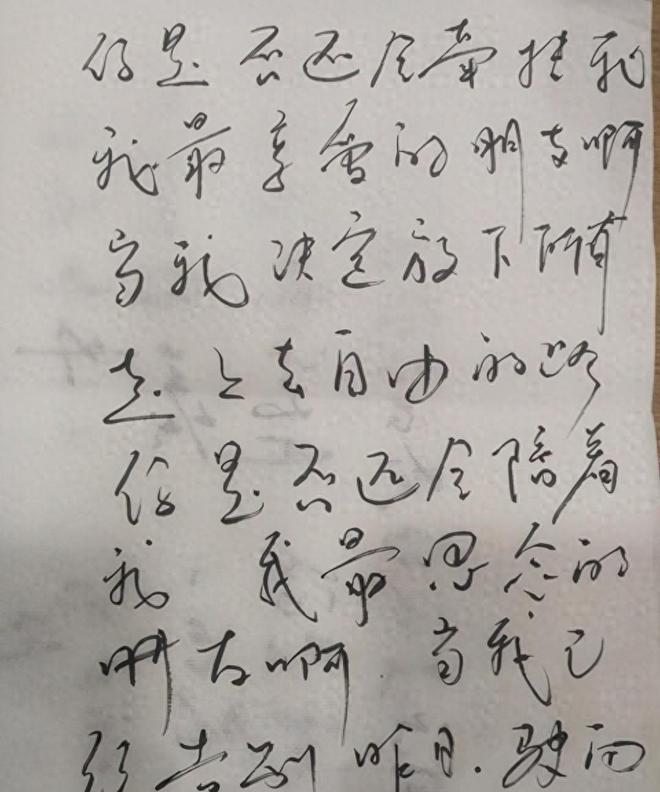 你是否还会牵挂我
我最亲爱的朋友啊
当我决定放下所有
走上去自由的路
你是否还会陪着
我 我最思念的
朋友啊 当我已
经告别昨日.驶向